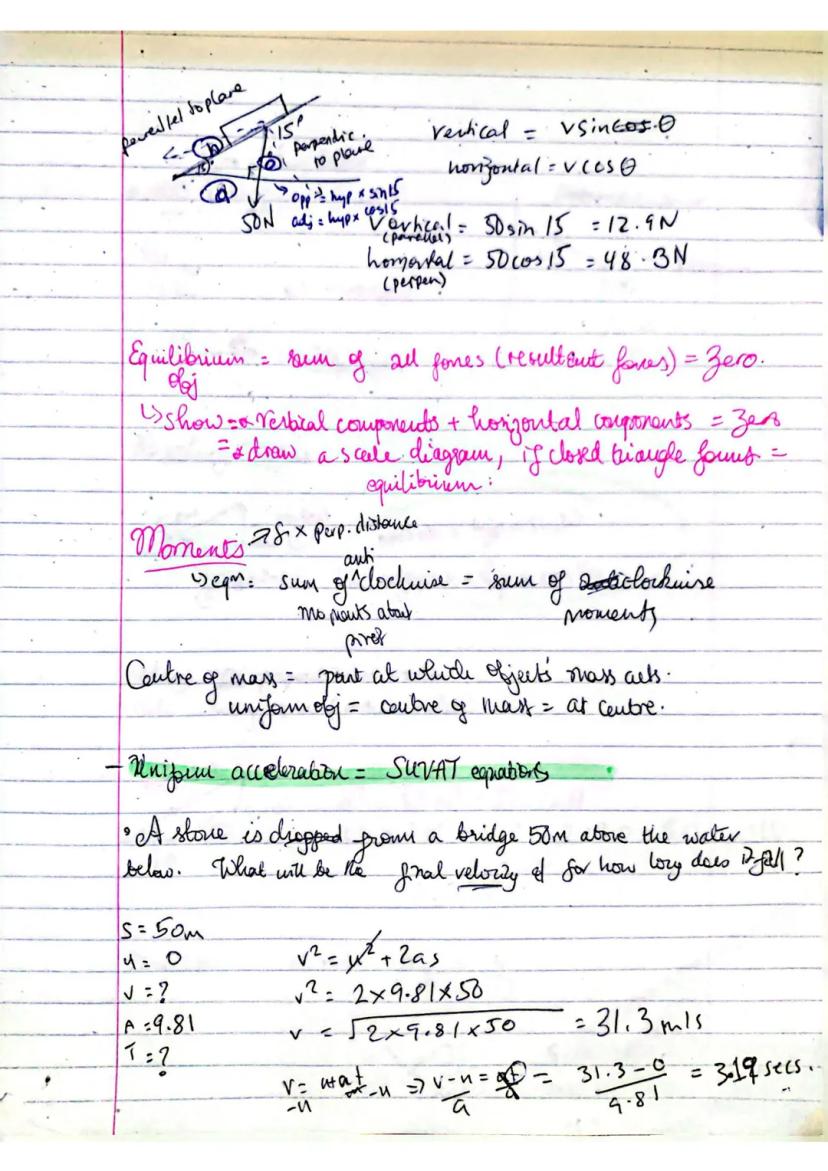 parallel to plane
15°
perpendic.
to plane
50N
opp = hyp × sin15
adj = hyp × cos15
vertical = vsincos.θ
horizontal = vcosθ
Vertical = 50sin 15 = 12.9N
(parallel)
horizontal = 50cos15 = 48.3N
(perpen)
Equilibrium = sum of all forces (resultant forces) = zero.
obj
↳ show = vertical components + horizontal components = zero
= draw a scale diagram, if closed triangle forms =
equilibrium:
Moments → f × perp. distance
anti
↳ eqm: sum of ^clockwise = sum of anticlockwise
moments about
pivot
moments
Centre of mass = point at which object's mass acts.
uniform obj = centre of mass = at centre.
- Uniform acceleration = SUVAT equations
• A stone is dropped from a bridge 50m above the water
below. What will be the final velocity & for how long does it fall?
S = 50m
u = 0
v = ?
A = 9.81
T = ?
v² = u² + 2as
v² = 2×9.81×50
v = √2×9.81×50 = 31.3 m/s
v = u+at ⇒ v-u = at = 31.3-0 = 3.19 secs.
-u -u a a 9.81